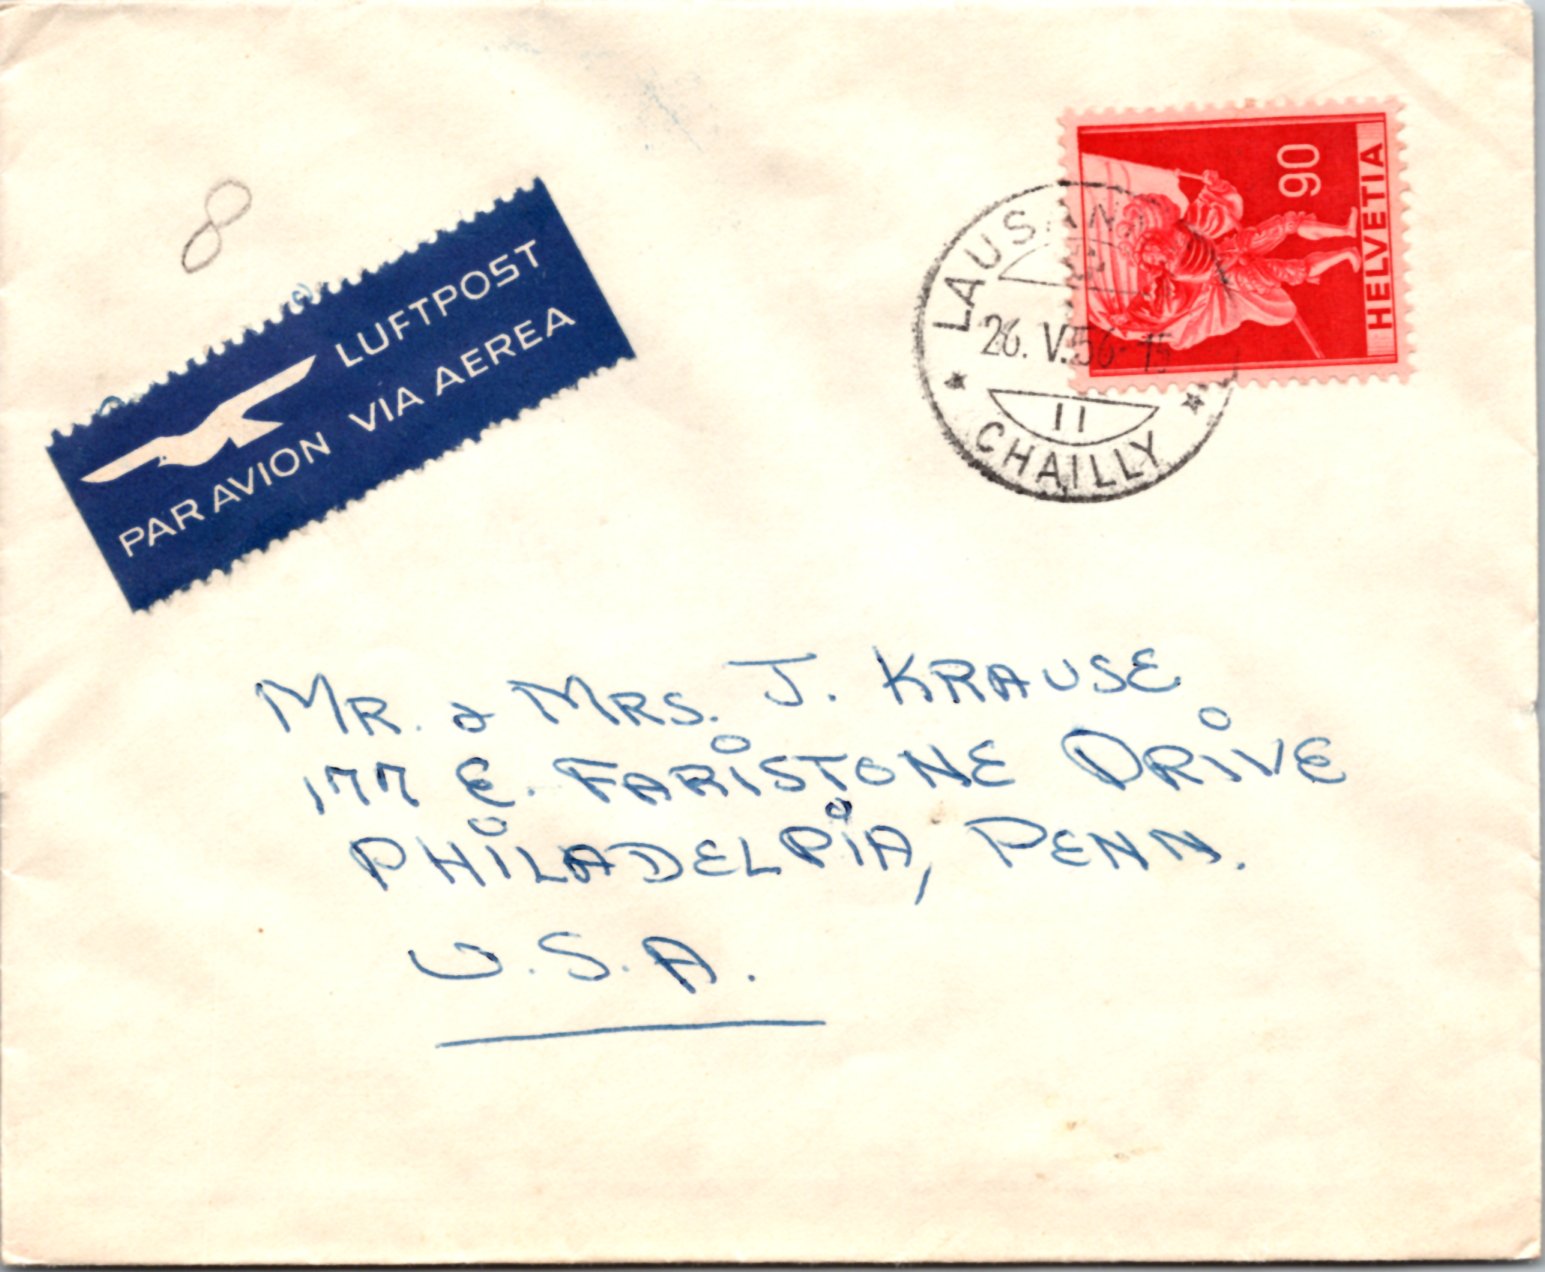 8
LUFTPOST
PAR AVION VIA AEREA
90
HELVETIA
LAUSANN
26. V. 56-15
11
CHAILLY
MR. & MRS. J. KRAUSE
177 E. FARISTONE DRIVE
PHILADELPIA, PENN.
U.S.A.